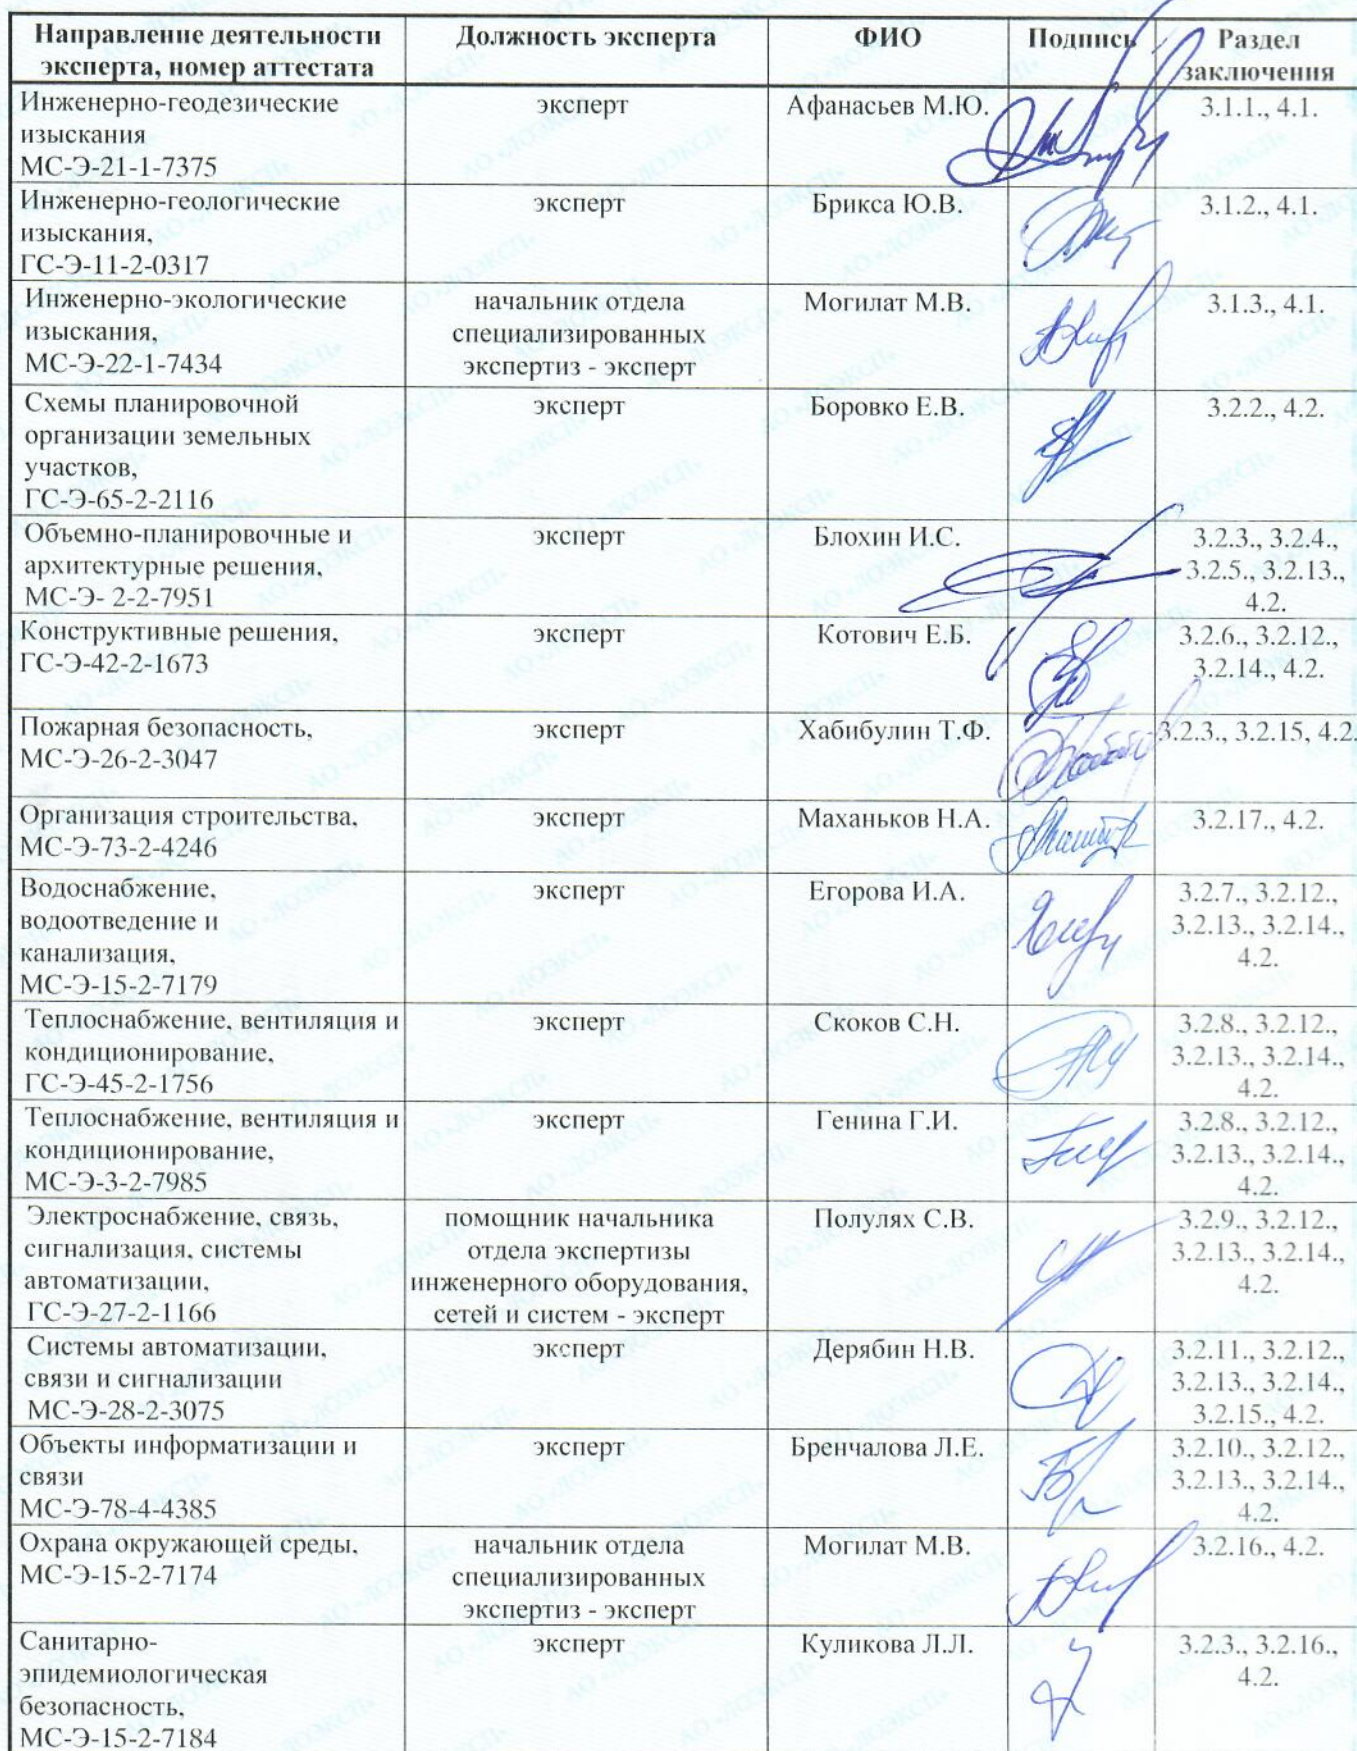 Направление деятельности эксперта, номер аттестата
Должность эксперта
ФИО
Подпись
Раздел заключения
Инженерно-геодезические
изыскания
МС-Э-21-1-7375
эксперт
Афанасьев М.Ю.
3.1.1., 4.1.
Инженерно-геологические
изыскания,
ГС-Э-11-2-0317
эксперт
Брикса Ю.В.
3.1.2., 4.1.
Инженерно-экологические
изыскания,
МС-Э-22-1-7434
начальник отдела
специализированных
экспертиз - эксперт
Могилат М.В.
3.1.3., 4.1.
Схемы планировочной
организации земельных
участков,
ГС-Э-65-2-2116
эксперт
Боровко Е.В.
3.2.2., 4.2.
Объемно-планировочные и
архитектурные решения,
МС-Э- 2-2-7951
эксперт
Блохин И.С.
3.2.3., 3.2.4.,
3.2.5., 3.2.13.,
4.2.
Конструктивные решения,
ГС-Э-42-2-1673
эксперт
Котович Е.Б.
3.2.6., 3.2.12.,
3.2.14., 4.2.
Пожарная безопасность,
МС-Э-26-2-3047
эксперт
Хабибулин Т.Ф.
3.2.3., 3.2.15, 4.2.
Организация строительства,
МС-Э-73-2-4246
эксперт
Маханьков Н.А.
3.2.17., 4.2.
Водоснабжение,
водоотведение и
канализация,
МС-Э-15-2-7179
эксперт
Егорова И.А.
3.2.7., 3.2.12.,
3.2.13., 3.2.14.,
4.2.
Теплоснабжение, вентиляция и
кондиционирование,
ГС-Э-45-2-1756
эксперт
Скоков С.Н.
3.2.8., 3.2.12.,
3.2.13., 3.2.14.,
4.2.
Теплоснабжение, вентиляция и
кондиционирование,
МС-Э-3-2-7985
эксперт
Генина Г.И.
3.2.8., 3.2.12.,
3.2.13., 3.2.14.,
4.2.
Электроснабжение, связь,
сигнализация, системы
автоматизации,
ГС-Э-27-2-1166
помощник начальника
отдела экспертизы
инженерного оборудования,
сетей и систем - эксперт
Полулях С.В.
3.2.9., 3.2.12.,
3.2.13., 3.2.14.,
4.2.
Системы автоматизации,
связи и сигнализации
МС-Э-28-2-3075
эксперт
Дерябин Н.В.
3.2.11., 3.2.12.,
3.2.13., 3.2.14.,
3.2.15., 4.2.
Объекты информатизации и
связи
МС-Э-78-4-4385
эксперт
Бренчалова Л.Е.
3.2.10., 3.2.12.,
3.2.13., 3.2.14.,
4.2.
Охрана окружающей среды,
МС-Э-15-2-7174
начальник отдела
специализированных
экспертиз - эксперт
Могилат М.В.
3.2.16., 4.2.
Санитарно-
эпидемиологическая
безопасность,
МС-Э-15-2-7184
эксперт
Куликова Л.Л.
3.2.3., 3.2.16.,
4.2.